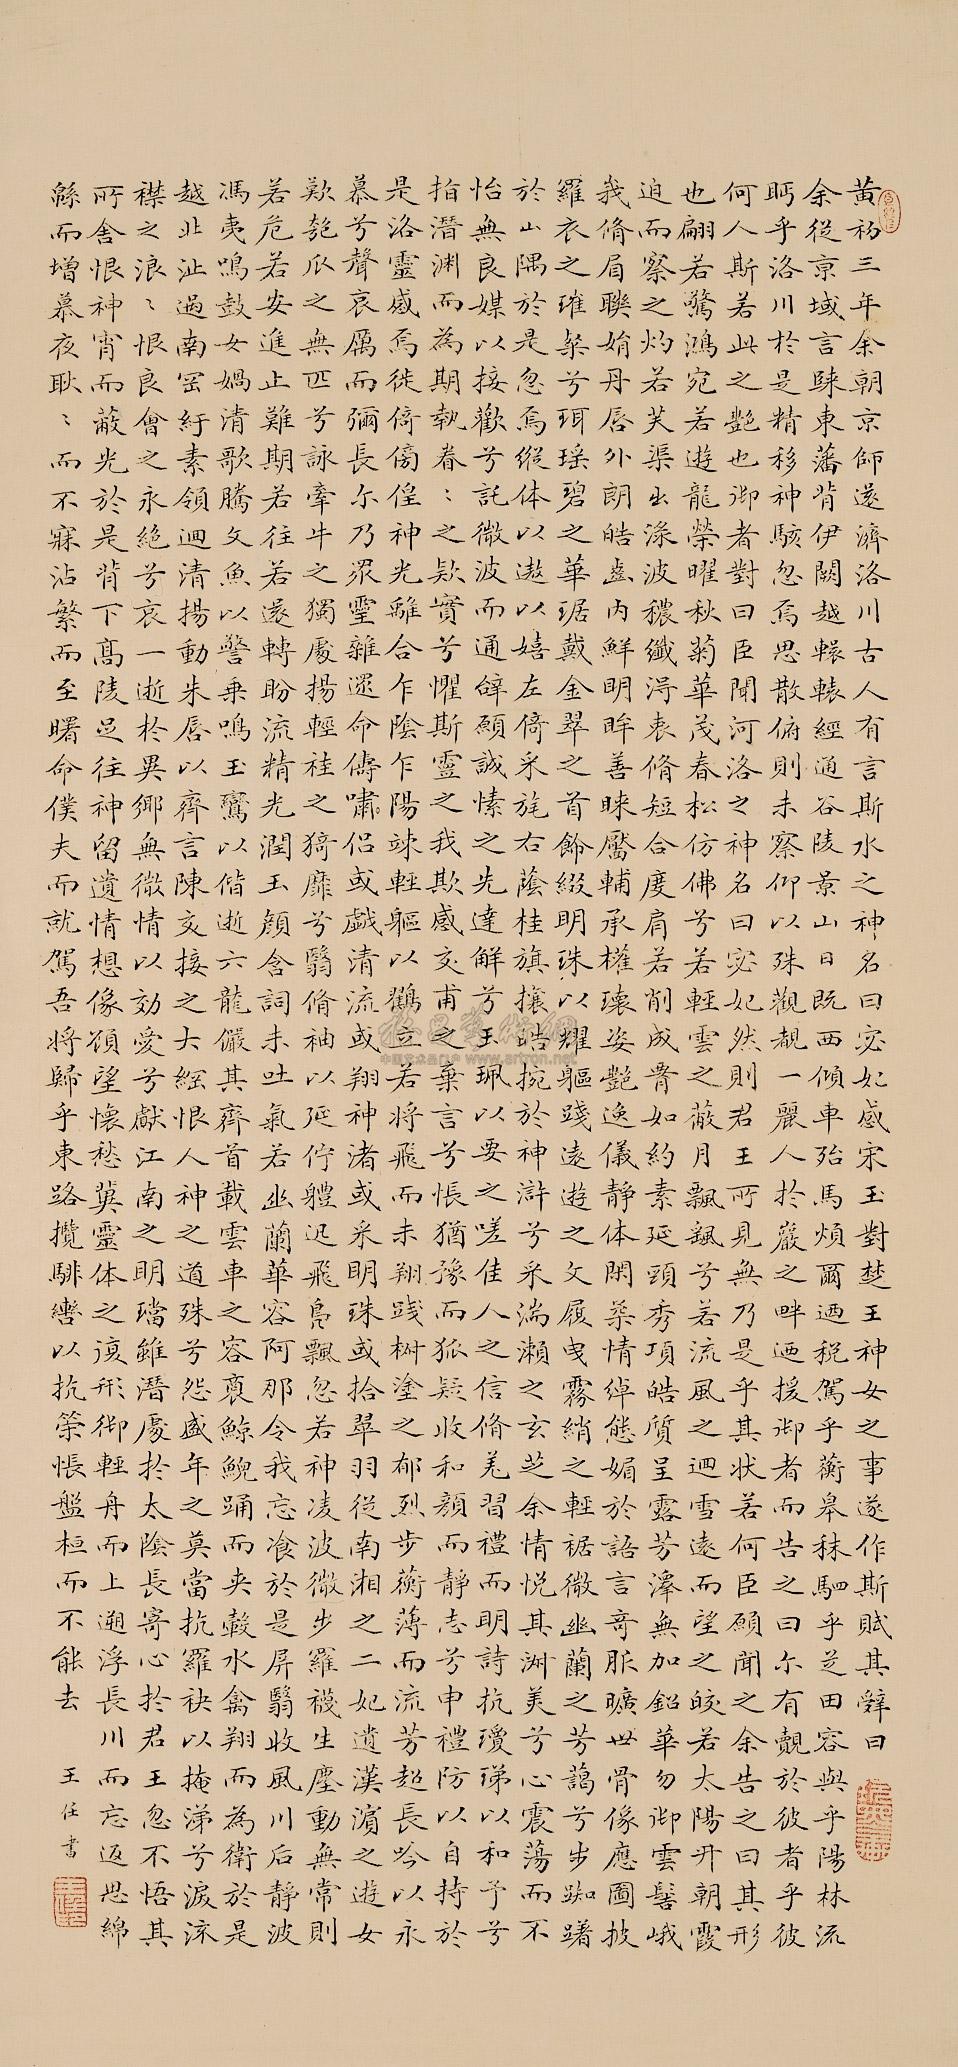 黃初三年余朝京師還濟洛川古人有言斯水之神名曰宓妃感宋玉對楚王神女之事遂作斯賦其辭曰
余從京域言歸東藩背伊闕越轘轅經通谷陵景山日既西傾車殆馬煩爾迺稅駕乎蘅皋秣駟乎芝田容與乎陽林流
眄乎洛川於是精移神駭忽焉思散俯則未察仰以殊觀覩一麗人於巖之畔迺援御者而告之曰尔有覿於彼者乎彼
何人斯若此之艷也御者對曰臣聞河洛之神名曰宓妃然則君王所見無乃是乎其狀若何臣願聞之余告之曰其形
也翩若驚鴻宛若遊龍榮曜秋菊華茂春松仿佛兮若輕雲之蔽月飄颻兮若流風之迴雪遠而望之皎若太陽升朝霞
迫而察之灼若芙渠出淥波穠纖淂衷脩短合度肩若削成如約素延頸秀項皓質呈露芳澤無加鉛華勿御雲髻峨
我脩眉聯娟丹唇外朗皓齒內鮮明眸善睞靨輔承權瓌姿艷逸儀靜体閑柔情綽態媚於語言奇服曠世骨像應圖披
羅衣之璀粲兮珥瑤碧之華琚戴金翠之首飾綴明珠以耀軀踐遠遊之文履曳霧綃之輕裾微幽蘭之芳藹兮步踟躇
於山隅於是忽焉縱体以遨以嬉左倚采旄右蔭桂旗攘皓捥於神滸兮采湍瀨之玄芝余情悅其淑美兮心震蕩而不
怡無良媒以接歡兮託微波而通辭願誠愫之先達解兮玉珮以要之嗟佳人之信脩羌習禮而明詩抗瓊珶以和予兮
指潛淵而為期執眷〻之欵實兮懼斯靈之我欺感交甫之棄言兮悵猶豫而狐疑收和顏而靜志兮申禮防以自持於
是洛靈感焉徙倚傍偟神光離合乍陰乍陽竦輕軀以鶴立若將飛而未翔踐椒塗之郁烈步蘅薄而流芳超長吟以永
慕兮聲哀厲而彌長尔乃眾靈雜遝命儔嘯侶或戲清流或翔神渚或采明珠或拾翠羽從南湘之二妃遺漢濱之遊女
歎匏瓜之無匹兮詠牽牛之獨處揚輕袿之猗靡兮翳脩袖以延佇體迅飛鳧飄忽若神凌波微步羅襪生塵動無常則
若危若安進止難期若往若還轉盼流精光潤玉顏含詞未吐氣若幽蘭華容阿那令我忘飡於是屏翳收風川后靜波
馮夷鳴鼓女媧清歌騰文魚以警乘鳴玉鸞以偕逝六龍儼其齊首載雲車之容裔鯨鯢踊而夾轂水禽翔而為衛於是
越北沚過南岡紆素領迴清揚動朱唇以齊言陳交接之大經恨人神之道殊兮怨盛年之莫當抗羅袂以掩涕兮淚流
襟之浪〻恨良會之永絕兮哀一逝於異鄉無微情以効愛兮獻江南之明璫雖潛處於太陰長寄心於君王忽不悟其
所舍恨神宵而蔽光於是背下高陵足往神留遺情想像顧望懷愁冀靈体之復形御輕舟而上遡浮長川而忘返思綿
緜而增慕夜耿〻而不寐沾繁而至曙命僕夫而就駕吾將歸乎東路攬騑轡以抗策悵盤桓而不能去
王任書